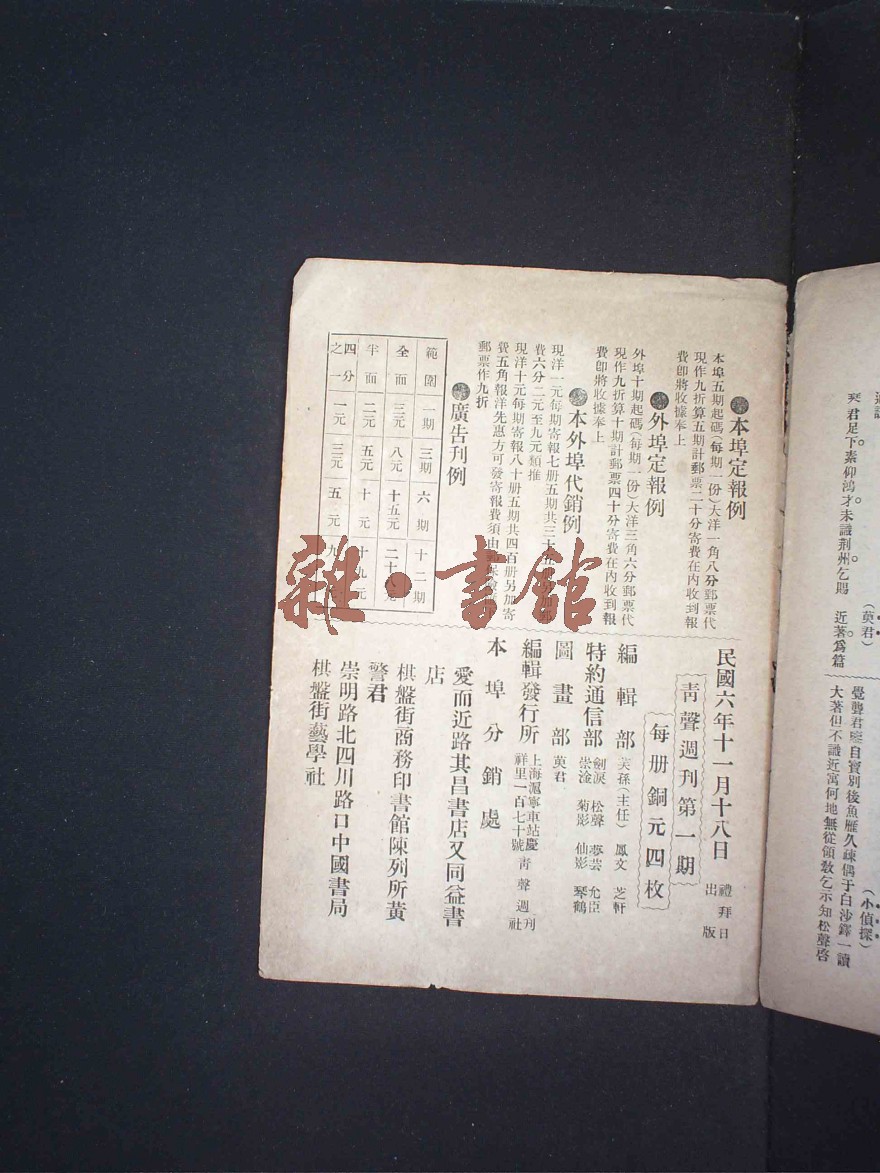 通訊
(莫君)
琹君足下。素仰鴻才未識荆州乞賜 近著。爲篇
(小偵探)
覺聾君座自寶別後魚雁久疎偶于白沙鐸一讀
大著但不識近寓何地無從領敎乞示知松聲啓
●本埠定報例
本埠五期起碼(每期一份)大洋一角八分郵票代
現作九折算五期計郵票二十分寄費在內收到報
費卽將收據奉上
●外埠定報例
外埠十期起碼(每期一份)大洋三角六分郵票代
現作九折算十期計郵票四十分寄費在內收到報
費卽將收據奉上
●本外埠代銷例
現洋一元每期寄報七册五期共三十
費六分二元至九元類推
現洋十元每期寄報八十册五期共四百册另加寄
費五角報洋先惠方可發寄報費須由
郵票作九折
●廣告刊例
範圍 一期 三期 六期 十二期
全面 三元 八元 十五元 二十 元
半面 二元 五元 十元 十九元
四分之一 一元 三元 五元 九
民國六年十一月十八日 禮拜日出版
靑聲週刊第一期
每册銅元四枚
編輯部 芙孫(主任) 鳳文 芝軒
特約通信部 劍淚 松聲 夢芸 允臣
崇淦 菊影 仙影 琴鶴
圖畫部 莫君
編輯發行所 上海滬寧車站慶祥里一百七十號 靑聲週刊社
本埠分銷處
愛而近路其昌書店又同益書
店
棋盤街商務印書館陳列所黃
警君
崇明路北四川路口中國書局
棋盤街藝學社
雜·書館